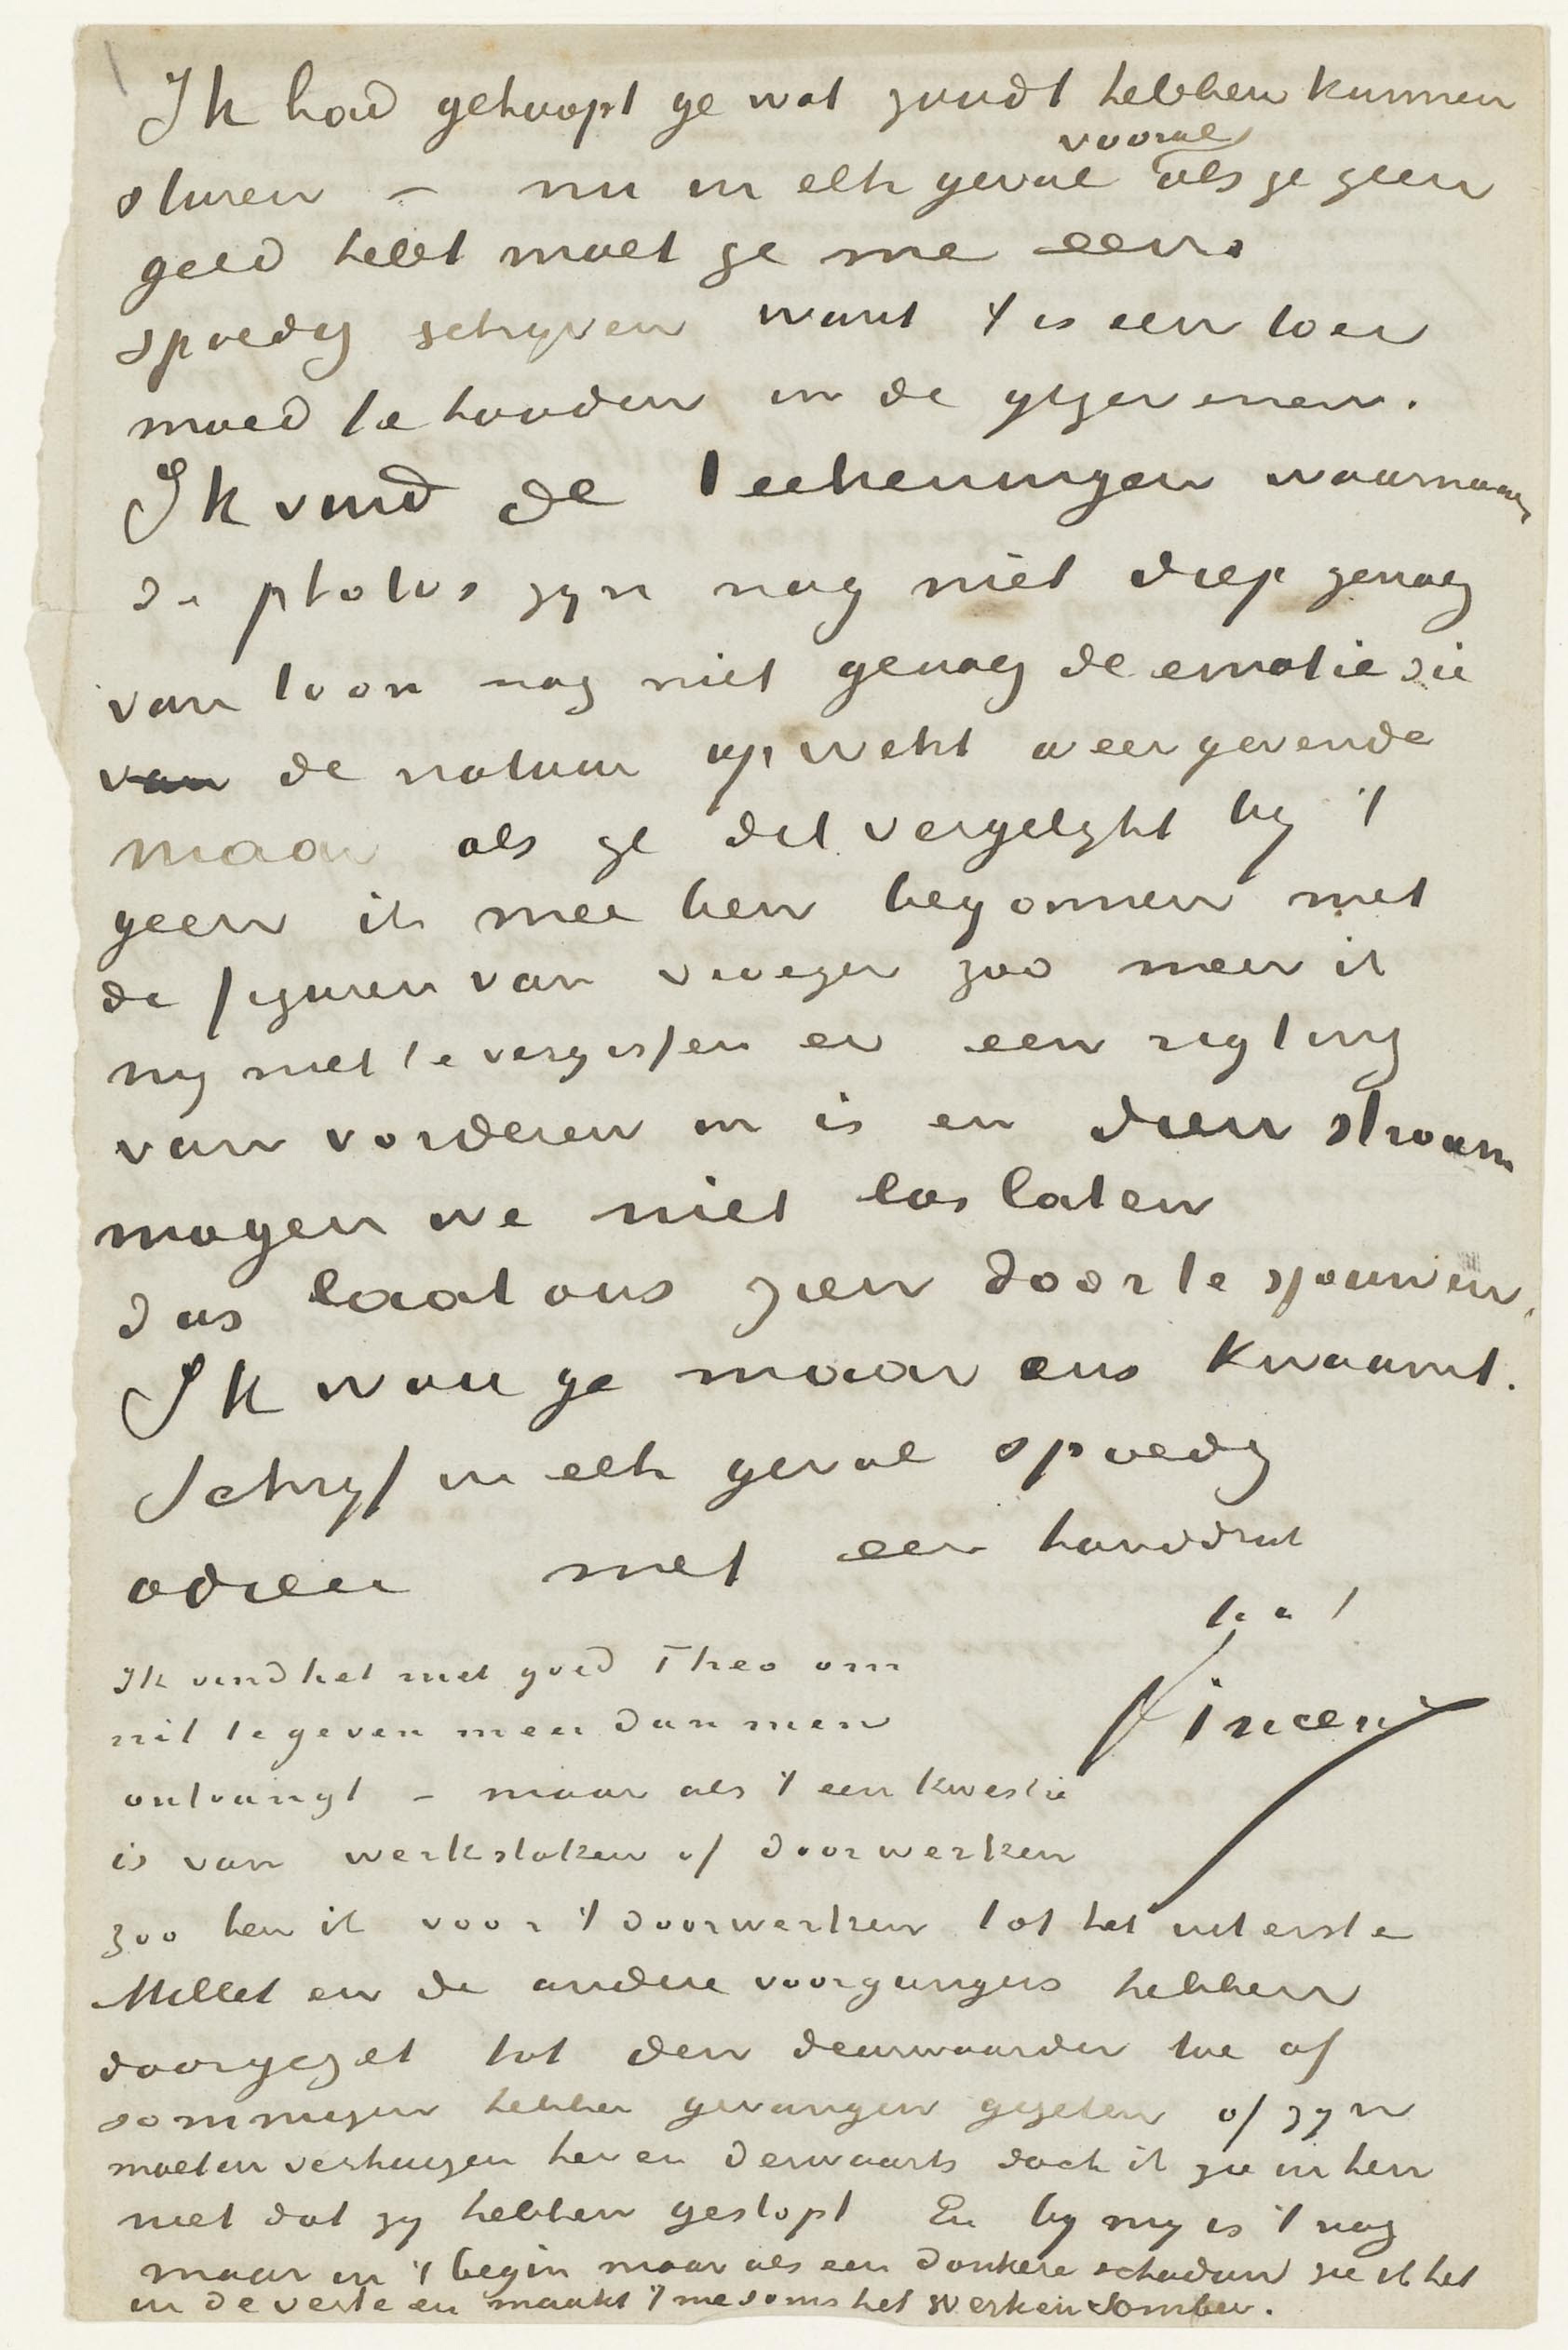 Ik had gehoopt ge wat zoudt hebben kunnen
vooral
sturen – nu in elk geval als ge geen
geld hebt moet ge me eens
spoedig schrijven want 't is een toer
moed te houden in de gegevenen.
Ik vind de teekeningen waarnaar
de photos zijn nog niet diep genoeg
van toon nog niet genoeg de emotie die
van de natuur opwekt weergevende
maar als ge dit vergelijkt bij 't
geen ik mee ben begonnen met
de figuren van vroeger zoo meen ik
mij niet te vergissen er een rigting
van vorderen in is en dien stroom
mogen we niet los laten
dus laat ons zien door te sjouwen.
Ik wou ge maar eens kwaamt.
Schrijf in elk geval spoedig
adieu met een handdruk
t. à t.
Vincent
Ik vind het niet goed Theo om
uit te geven meer dan men
ontvangt – maar als 't een kwestie
is van werkstaken of doorwerken
zoo ben ik voor 't doorwerken tot het uiterste
Millet en de andere voorgangers hebben
doorgezet tot den deurwaarder toe of
sommigen hebben gevangen gezeten of zijn
moeten verhuizen her en derwaarts doch ik zie in hen
niet dat zij hebben gestopt En bij mij is 't nog
maar in 't begin maar als een donkere schaduw zie ik het
in de verte en maakt 't me soms het werken somber.